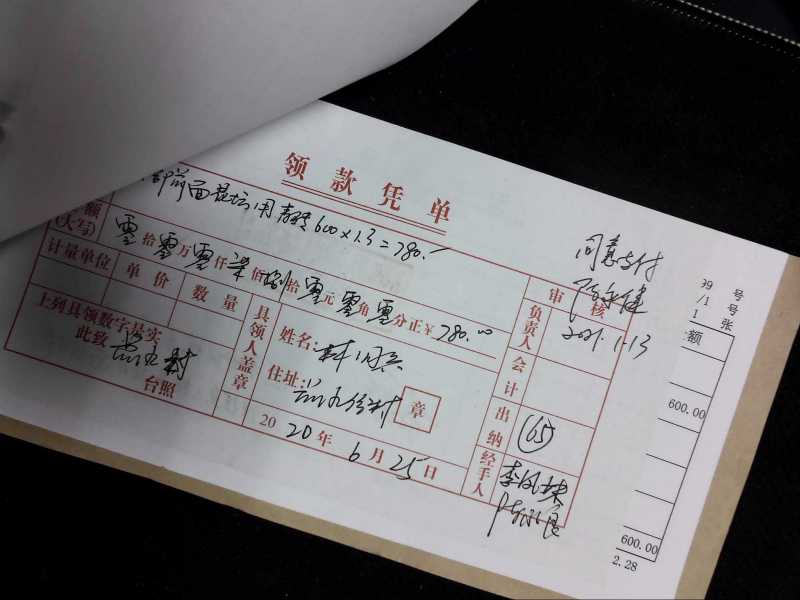 领款凭单
前面花坛用青砖600×1.3=780.-
额
(大写) 零拾零万零仟柒佰捌拾零元零角零分正¥780.00
计量单位 单价 数量
上列具领数字是实
此致
台照
具领人盖章
姓名:
住址:
章
2020年6月25日
审核
负责人
会计
出纳 65
经手人
同意支付
2021.1.13
39号
/1号
1张
金额
600.00
600.00
2.28